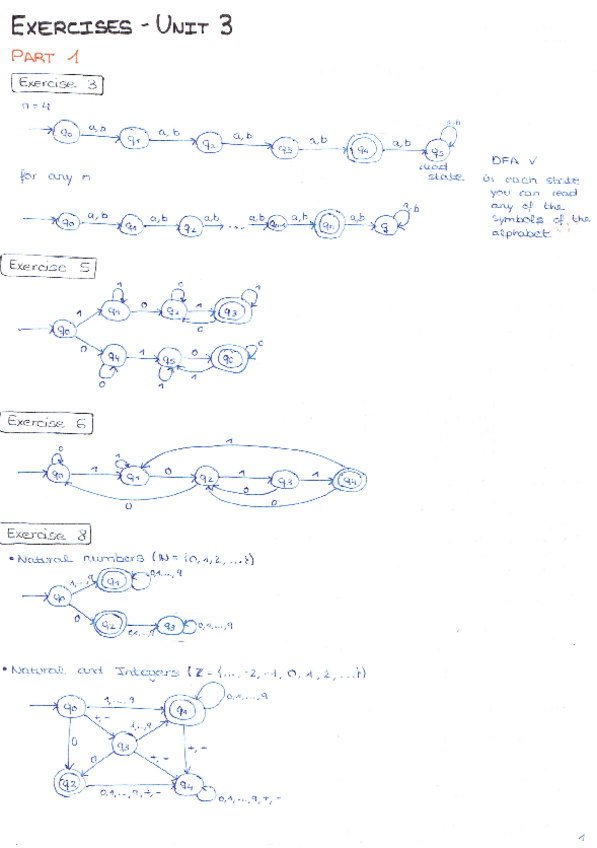 EXERCISES - UNIT 3
PART 1
Exercise 3
n = 4
q0 a,b q1 a,b q2 a,b q3 a,b q4 a,b q5 a,b
dead state
DFA ✓
in each state
you can read
any of the
symbols of the
alphabet
for any n
q0 a,b q1 a,b q2 a,b .... a,b a,b a,b a,b
Exercise 5
q0 1 q1 1 0 q2 0 1 q3 1 0
0 q4 0 1 q5 1 0 0 1
Exercise 6
q0 0 1 q1 1 0 q2 1 q3 1 q4 1
0 0 0
Exercise 8
• Natural numbers (N = {0,1,2,...})
q0 1,...,9 q1 0,1,...,9
0 q2 0,1,...,9 q3 0,1,...,9
• Natural and Integers (Z = {..., -2, -1, 0, 1, 2, ...})
q0 1,...,9 q1 0,1,...,9
+,- 1,...,9
0 q3 +,-
0 +,-
q2 q4
0,1,...,9,+,- 0,1,...,9,+,-
1